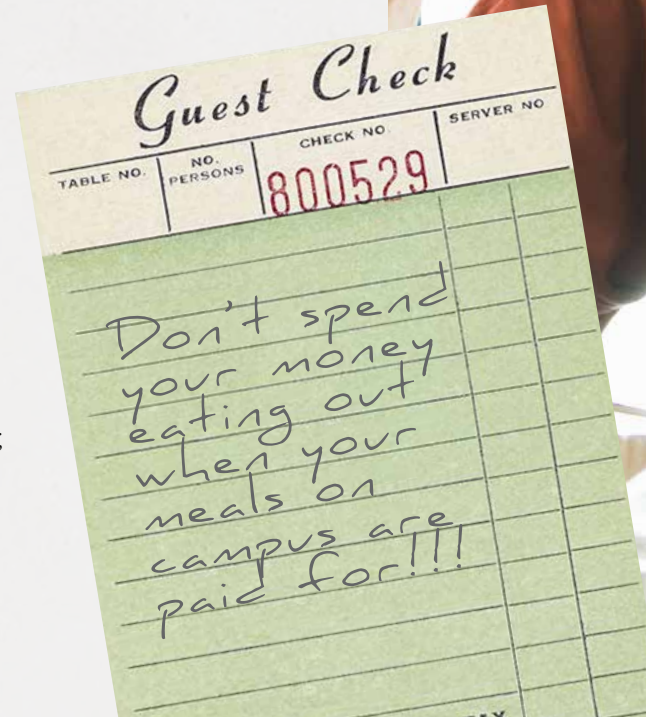 Guest Check
TABLE NO. NO. PERSONS CHECK NO. SERVER NO
800529
Don't spend
your money
eating out
when your
meals on
campus are
paid for!!!